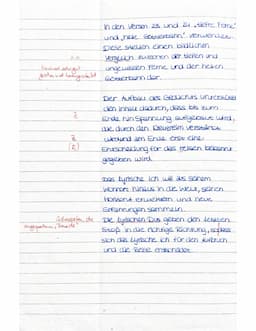 In den Versen 23 und 24 „tiefe Ferne"
und „helle Sonnenbahn" verwendet.
Diese stellen einen bildlichen
Vergleich zwischen der tiefen und
ungewissen Ferne und der hellen
Sonnenbahn dar.
Der Aufbau des Gedichts unterstützt
den Inhalt dadurch, dass bis zum
Ende hin Spannung aufgebaut wird,
die durch den
während am Ende erst eine
Entscheidung für das Reisen bekannt
gegeben wird.
Das Lyrische Ich will aus seinem
Wohnort hinaus in die Welt, seinen
Horizont erweitern und neue
Erfahrungen sammeln.
Die Lyrischen Dus geben den letzten
Stoß in die richtige Richtung, sodass
sich das lyrische Ich für den Aufbruch
und die Reise entscheidet.